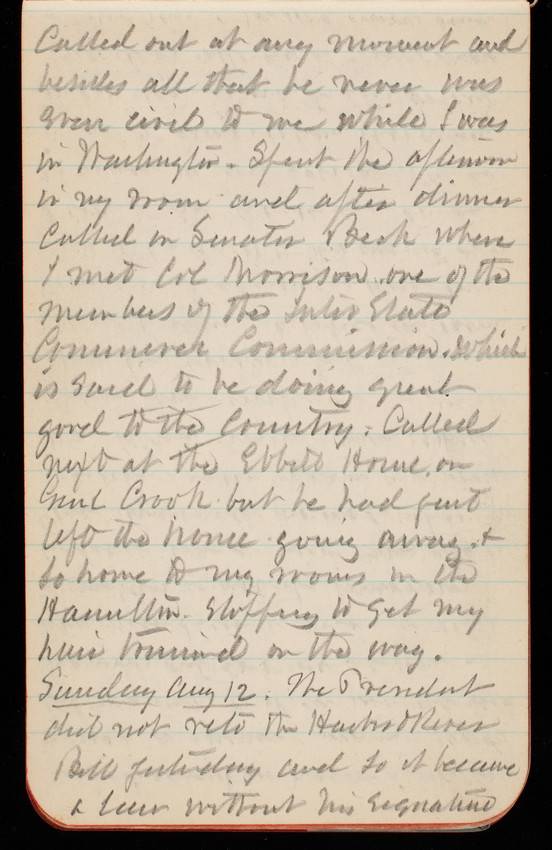 Called out at any moment and
besides all that he never was
even civil to me while I was
in Washington. Spent the afternoon
in my room and after dinner
called on Senator Beck where
I met Col Morrison one of the
members of the Inter State
Commerce Commission. which
is said to be doing great
good to the Country. Called
next at the Ebbett House, on
Genl Crook but he had just
left the house going away. &
so home to my rooms in the
Hamilton. Stopping to get my
hair trimmed on the way.
Sunday Aug 12. The President
did not veto the Harbor & River
Bill yesterday and so it became
a law without his signature